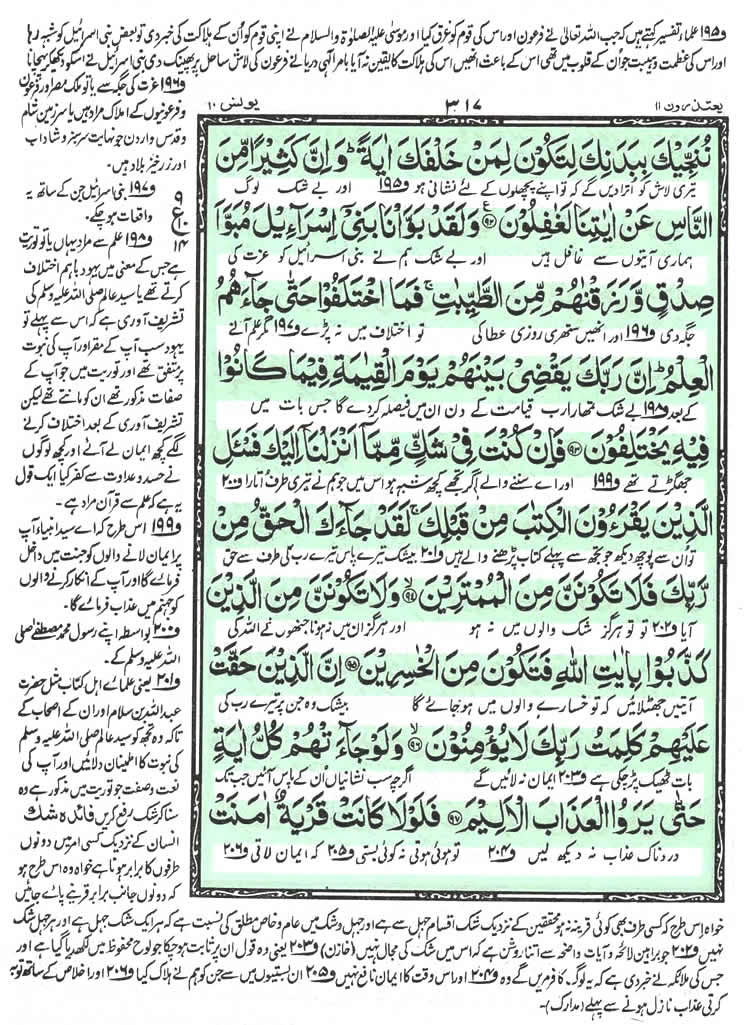 و۱۹۵ علماء تفسیر کہتے ہیں کہ جب اللہ تعالیٰ نے فرعون اور اس کی قوم کو غرق کیا اور موسیٰ علیہ الصلوٰۃ والسلام نے اپنی قوم کو اُن کے ہلاکت کی خبر دی تو بعض بنی اسرائیل کو شبہ رہا
اور اس کی عظمت و ہیبت جو اُن کے قلوب میں تھی اس کے باعث انھیں اس کی ہلاکت کا یقین نہ آیا بامر الٰہی دریا نے فرعون کی لاش ساحل پر پھینک دی بنی اسرائیل نے اسکو دیکھ کر پہچانا
یعتذرون ۱۱
۳۱۷
یونس ۱۰
نُنَجِّیۡکَ بِبَدَنِکَ لِتَکُوۡنَ لِمَنۡ خَلۡفَکَ اٰیَۃً ؕ وَ اِنَّ کَثِیۡرًا مِّنَ
تیری لاش کو اترا دیں گے کہ تو اپنے پچھلوں کے لئے نشانی ہو و۱۹۵ اور بے شک لوگ
النَّاسِ عَنۡ اٰیٰتِنَا لَغٰفِلُوۡنَ ﴿۹۲﴾ وَ لَقَدۡ بَوَّاۡنَا بَنِیۡۤ اِسۡرَآءِیۡلَ مُبَوَّاَ
ہماری آیتوں سے غافل ہیں اور بے شک ہم نے بنی اسرائیل کو عزت کی
صِدۡقٍ وَّ رَزَقۡنٰہُمۡ مِّنَ الطَّیِّبٰتِ ۚ فَمَا اخۡتَلَفُوۡا حَتّٰی جَآءَہُمُ
جگہ دی و۱۹۶ اور انھیں ستھری روزی عطا کی تو اختلاف میں نہ پڑے و۱۹۷ مگر علم آنے
الۡعِلۡمُ ؕ اِنَّ رَبَّکَ یَقۡضِیۡ بَیۡنَہُمۡ یَوۡمَ الۡقِیٰمَۃِ فِیۡمَا کَانُوۡا
کے بعد و۱۹۸ بے شک تمھارا رب قیامت کے دن ان میں فیصلہ کر دے گا جس بات میں
فِیۡہِ یَخۡتَلِفُوۡنَ ﴿۹۳﴾ فَاِنۡ کُنۡتَ فِیۡ شَکٍّ مِّمَّاۤ اَنۡزَلۡنَاۤ اِلَیۡکَ فَسۡـَٔلِ
جھگڑتے تھے و۱۹۹ اور اے سننے والے اگر تجھے کچھ شبہ ہو اس میں جو ہم نے تیری طرف اتارا و۲۰۰
الَّذِیۡنَ یَقۡرَءُوۡنَ الۡکِتٰبَ مِنۡ قَبۡلِکَ ۚ لَقَدۡ جَآءَکَ الۡحَقُّ مِنۡ
تو اُن سے پوچھ دیکھ جو تجھ سے پہلے کتاب پڑھنے والے ہیں و۲۰۱ بیشک تیرے پاس تیرے رب کی طرف سے حق
رَّبِّکَ فَلَا تَکُوۡنَنَّ مِنَ الۡمُمۡتَرِیۡنَ ﴿ۙ۹۴﴾ وَ لَا تَکُوۡنَنَّ مِنَ الَّذِیۡنَ
آیا و۲۰۲ تو تو ہرگز شک والوں میں نہ ہو اور ہرگز ان میں نہ ہونا جنھوں نے اللہ کی
کَذَّبُوۡا بِاٰیٰتِ اللّٰہِ فَتَکُوۡنَ مِنَ الۡخٰسِرِیۡنَ ﴿۹۵﴾ اِنَّ الَّذِیۡنَ حَقَّتۡ
آیتیں جھٹلائیں کہ تو خسارے والوں میں ہو جائے گا بیشک وہ جن پر تیرے رب کی
عَلَیۡہِمۡ کَلِمَتُ رَبِّکَ لَا یُؤۡمِنُوۡنَ ﴿ۙ۹۶﴾ وَ لَوۡ جَآءَتۡہُمۡ کُلُّ اٰیَۃٍ
بات ٹھیک پڑ چکی ہے و۲۰۳ ایمان نہ لائیں گے اگرچہ سب نشانیاں اُن کے پاس آئیں جب تک
حَتّٰی یَرَوُا الۡعَذَابَ الۡاَلِیۡمَ ﴿۹۷﴾ فَلَوۡ لَا کَانَتۡ قَرۡیَۃٌ اٰمَنَتۡ
دردناک عذاب نہ دیکھ لیں و۲۰۴ تو ہوئی ہوتی نہ کوئی بستی و۲۰۵ کہ ایمان لاتی و۲۰۶
و۱۹۶ عزت کی جگہ سے یا تو ملک مصر اور فرعون
و فرعونیوں کے املاک مراد ہیں یا سرزمین شام
و قدس و اردن جو نہایت سرسبز و شاداب
اور زرخیز بلاد ہیں۔
و۱۹۷ بنی اسرائیل جن کے ساتھ یہ
واقعات ہو چکے۔
۹
ع
۱۰
۱۴
و۱۹۸ علم سے مراد یہاں یا تو توریت
ہے جس کے معنی میں یہود باہم اختلاف
کرتے تھے یا سید عالم صلی اللہ علیہ وسلم کی
تشریف آوری ہے کہ اس سے پہلے تو
یہود سب آپ کے مقر اور آپ کی نبوت
پر متفق تھے اور توریت میں جو آپ کے
صفات مذکور تھے ان کو مانتے تھے لیکن
تشریف آوری کے بعد اختلاف کرنے
لگے کچھ ایمان لے آئے اور کچھ لوگوں
نے حسد و عداوت سے کفر کیا ایک قول
یہ ہے کہ علم سے قرآن مراد ہے۔
و۱۹۹ اس طرح کہ اے سید انبیاء آپ
پر ایمان لانے والوں کو جنت میں داخل
فرمائے گا اور آپ کے انکار کرنے والوں
کو جہنم میں عذاب فرمائے گا۔
و۲۰۰ بواسطہ اپنے رسول محمد مصطفےٰ صلی
اللہ علیہ وسلم کے۔
و۲۰۱ یعنی علمائے اہل کتاب مثل حضرت
عبد اللہ بن سلام اور ان کے اصحاب کے
تاکہ وہ تجھ کو سید عالم صلی اللہ علیہ وسلم
کی نبوت کا اطمینان دلائیں اور آپ کی
نعت و صفت جو توریت میں مذکور ہے وہ
سنا کر شک رفع کریں فائدہ شک
انسان کے نزدیک کسی امر میں دونوں
طرفوں کا برابر ہونا ہے خواہ وہ اس طرح ہو
کہ دونوں جانب برابر قرینے پائے جائیں
خواہ اِس طرح کہ کسی طرف بھی کوئی قرینہ نہ ہو محققین کے نزدیک شک اقسام جہل سے ہے اور جہل و شک میں عام و خاص مطلق کی نسبت ہے کہ ہر ایک شک جہل ہے اور ہر جہل شک
نہیں و۲۰۲ جو براہین لائحہ و آیات واضحہ سے اتنا روشن ہے کہ اس میں شک کی مجال نہیں (خازن) و۲۰۳ یعنی وہ قول ان پر ثابت ہو چکا جو لوح محفوظ میں لکھ دیا گیا ہے اور
جس کی ملائکہ نے خبر دی ہے کہ یہ لوگ کافر مریں گے وہ و۲۰۴ اور اس وقت کا ایمان نافع نہیں و۲۰۵ ان بستیوں میں سے جن کو ہم نے ہلاک کیا و۲۰۶ اور اخلاص کے ساتھ توبہ
کرتی عذاب نازل ہونے سے پہلے (مدارک)۔